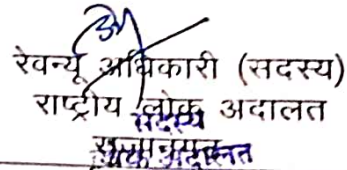 रेवन्यू अधिकारी (सदस्य)
राष्ट्रीय लोक अदालत
सदस्य
अदालत